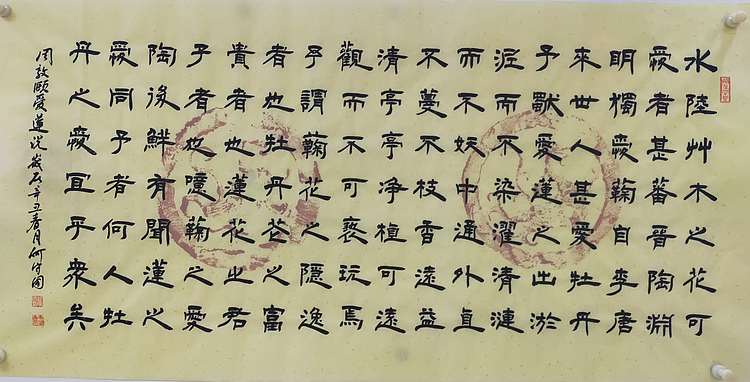 水陸艸木之花可
愛者甚蕃晉陶淵
明獨愛鞠自李唐
来世人甚愛牡丹
予獨愛蓮之出淤
泥而不染濯清漣
而不妖中通外直
不蔓不枝香遠益
清亭亭净植可遠
觀而不可褻玩焉
予謂鞠花之隱逸
者也牡丹花之富
貴者也蓮花之君
子者也噫鞠之愛
陶後鮮有聞蓮之
愛同予者何人牡
丹之愛宜乎衆矣
周敦頤愛蓮说歲在辛丑春月何守国